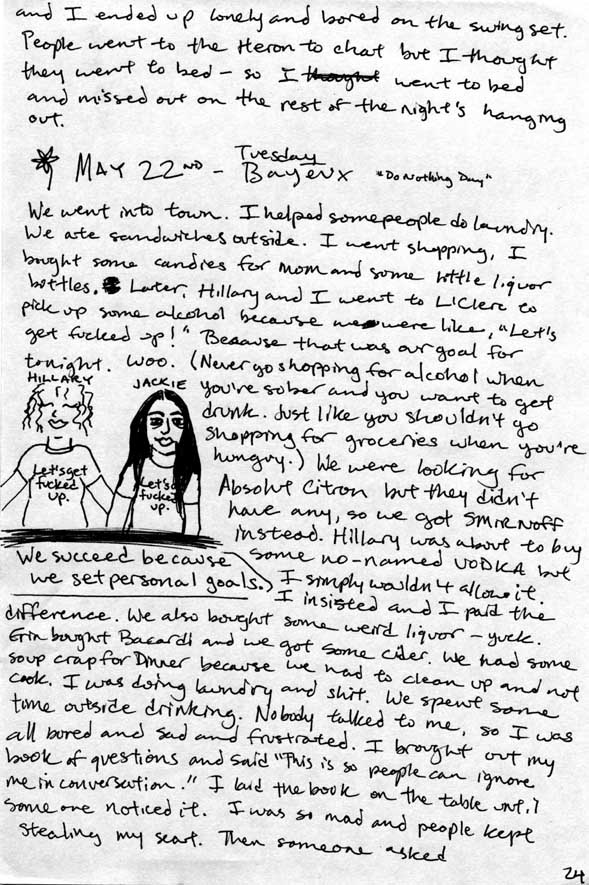 and I ended up lonely and bored on the swing set.
People went to the Heron to chat but I thought
they went to bed - so I thought went to bed
and missed out on the rest of the night's hanging
out.
MAY 22ND - Tuesday
Bayeux "Do Nothing Day"
We went into town. I helped some people do laundry.
We ate sandwiches outside. I went shopping, I
bought some candies for mom and some little liquor
bottles. Later, Hillary and I went to L'Clerc to
pick up some alcohol because we were like, "Let's
get fucked up!" Because that was our goal for
tonight. Woo. (Never go shopping for alcohol when
you're sober and you want to get
drunk. Just like you shouldn't go
shopping for groceries when you're
hungry.) We were looking for
Absolut Citron but they didn't
have any, so we got SMIRNOFF
instead. Hillary was about to buy
some no-named VODKA but
I simply wouldn't allow it.
I insisted and I paid the
difference. We also bought some weird liquor - yuck.
Erin bought Bacardi and we got some cider. We had some
soup crap for Dinner because we had to clean up and not
cook. I was doing laundry and shit. We spent some
time outside drinking. Nobody talked to me, so I was
all bored and sad and frustrated. I brought out my
book of questions and said "This is so people can ignore
me in conversation." I laid the book on the table until
someone noticed it. I was so mad and people kept
stealing my seat. Then someone asked
HILLARY
JACKIE
Let's get
fucked
up.
Let's g
fucked
up.
We succeed because
we set personal goals.
24